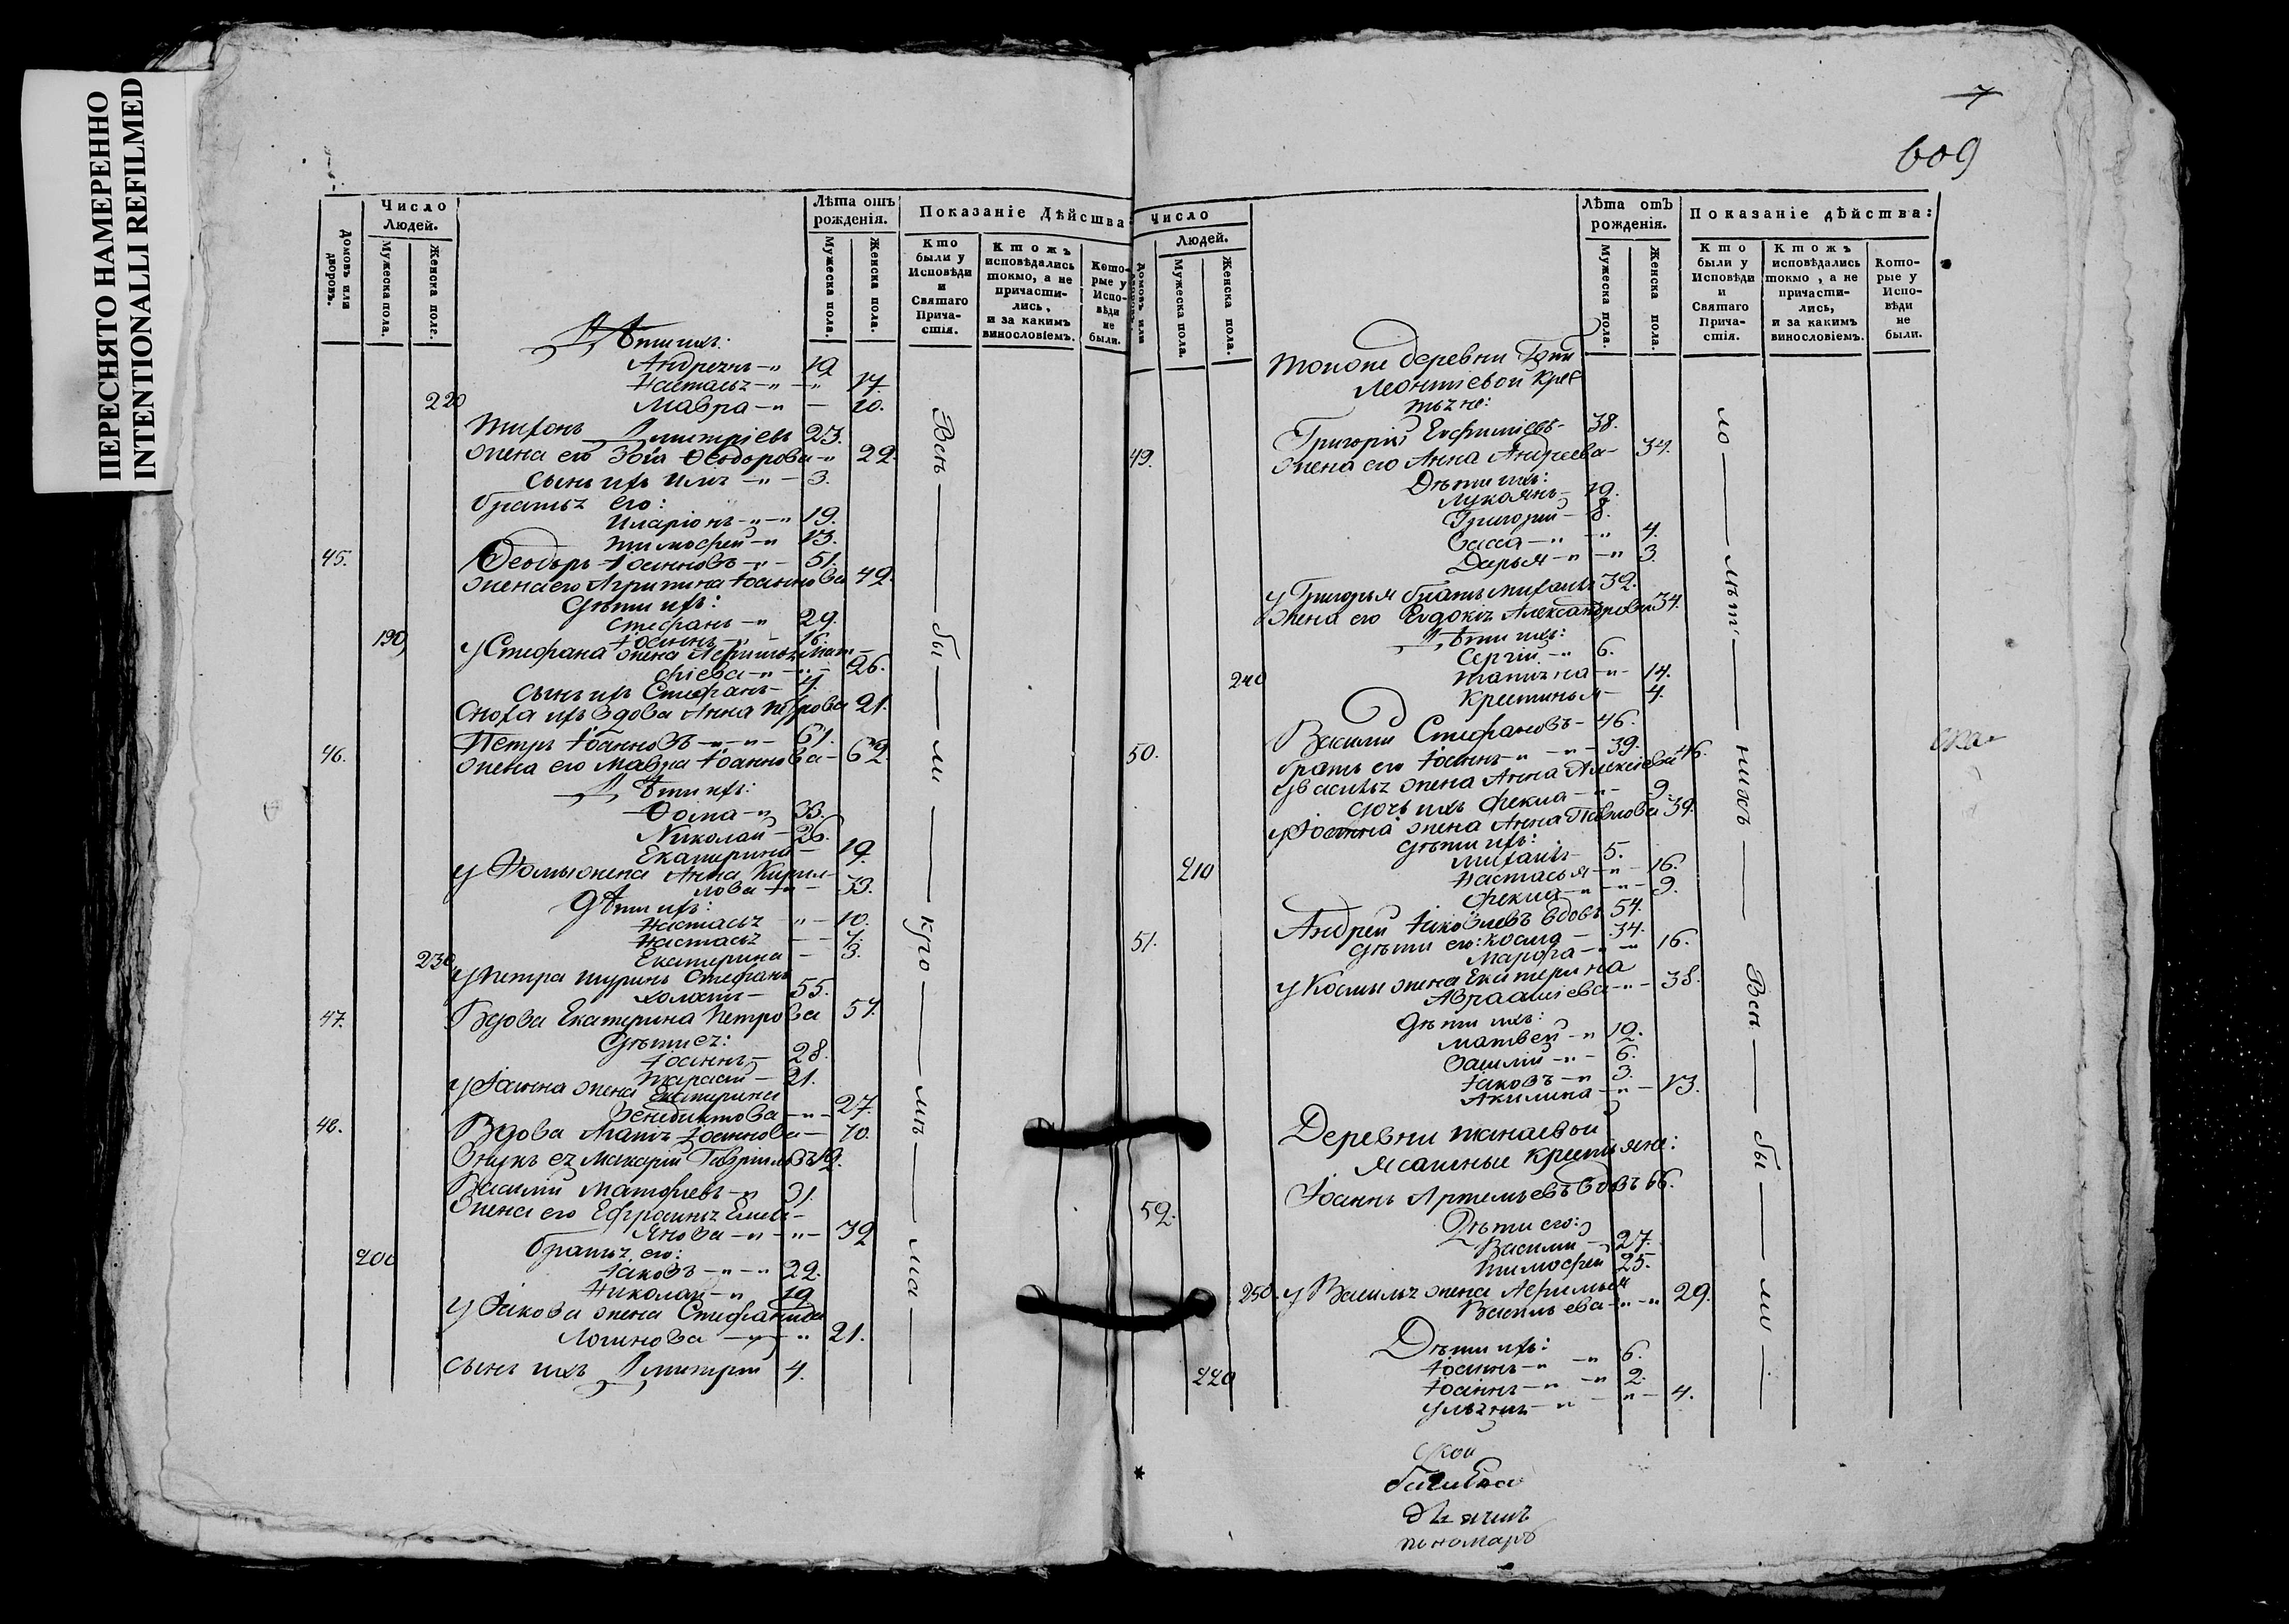 ПЕРЕСНЯТО НАМЕРЕННО
INTENTIONALLI REFILMED
7
609
Домовъ или дворовъ.
Число Людей.
Мужеска пола.
Женска пола.
Лѣта отъ рожденія.
Мужеска пола.
Женска пола.
Показаніе Дѣйства
Кто были у Исповѣди и Святаго Причастія.
Ктожъ исповѣдались токмо, а не причастились, и за какимъ винословіемъ.
Которые у Исповѣди не были.
Дѣти ихъ:
Андреянъ 19
Настасья 17.
220 Мавра 10.
Тихонъ Димитріевъ 23.
жена его Зоѵа Ѳеодорова 22.
сынъ ихъ Илья 3.
братья его:
Иларіонъ 19.
Тимофей 13.
45. Ѳеодоръ Іоанновъ 51.
жена его Агрипина Іоаннова 49.
Дѣти ихъ:
Стефанъ 29.
190 Іоаннъ 16.
у Стефана жена Афимья Мат-
фіева 26.
сынъ ихъ Стефанъ 4.
Сноха ихъ вдова Анна Петрова 21.
46. Петръ Іоанновъ 61.
жена его Мавра Іоаннова 62.
Дѣти ихъ:
Ѳома 33.
Николай 26.
Екатерина 19.
у Ѳомы жена Анна Кирил-
лова 33.
Дѣти ихъ:
Настасья 10.
Настасья 7.
230 Екатерина 3.
у Петра шуринъ Стефанъ
холостъ 55.
47. Вдова Екатерина Петрова 57.
Дѣти ея:
Іоаннъ 28.
Тарасій 21.
у Іоанна жена Екатерина
Венедиктова 27.
48. Вдова Іоаннова 70.
Внукъ ея Макарій Гавріиловъ 19.
Василій Матфіевъ 31.
Жена его Ефросинья Емель-
янова 32
братья его:
200 Іаковъ 22.
Николай 19
у Іакова жена Стефанида
Логинова 21.
сынъ ихъ Димитрій 4.
Всѣ — бы — ли — кро — мѣ — ма —
Число Людей.
Домовъ или дворовъ.
Мужеска пола.
Женска пола.
Лѣта отЪ рожденія.
Мужеска пола.
Женска пола.
Показаніе дѣйства:
Кто были у Исповѣди и Святаго Причастія.
Ктожъ исповѣдались токмо, а не причастились, и за какимъ винословіемъ.
Которые у Исповѣди не были.
тоя же деревни
Леонтіевой крес
тьяне:
49. Григорій Евфиміевъ 38.
жена его Анна Андреева 34.
Дѣти ихъ:
Лукоянъ 19.
Григорій 8.
Васса 4.
Дарья 3.
у Григорья братъ Михаилъ 32.
жена его Евдокія Александрова 34.
Дѣти ихъ:
Сергій 6.
240 Татьяна 14.
Крестинья 4.
50. Василій Стефановъ 46.
братъ его Іоаннъ 39.
у Василья жена Анна Алексіева 46.
дочь ихъ Фекла 9.
у Іоанна жена Анна Павлова 39.
Дѣти ихъ:
210 Михаилъ 5.
Настасья 16.
Фекла 9.
51. Андрей Іаковлевъ вдовъ 54.
Дѣти его: Косма 34.
Марфа 16.
у Космы жена Екатерина
Авраамієва 38.
Дѣти ихъ:
Матвей 12.
Василій 6.
Іаковъ 3.
Акилина 13.
Деревни Танаевой
ясашные крестьяне:
52. Іоаннъ Артемьевъ вдовъ 66.
Дѣти его:
Василій 27.
Тимофей 25.
250. у Василья жена Афимья
Васильева 29.
Дѣти ихъ:
Іоаннъ 6.
220 Іоаннъ 2.
Ульянія 4.
ло — лѣт — нихъ — Всѣ — бы — ли —
ской
дьячикъ
пономаръ